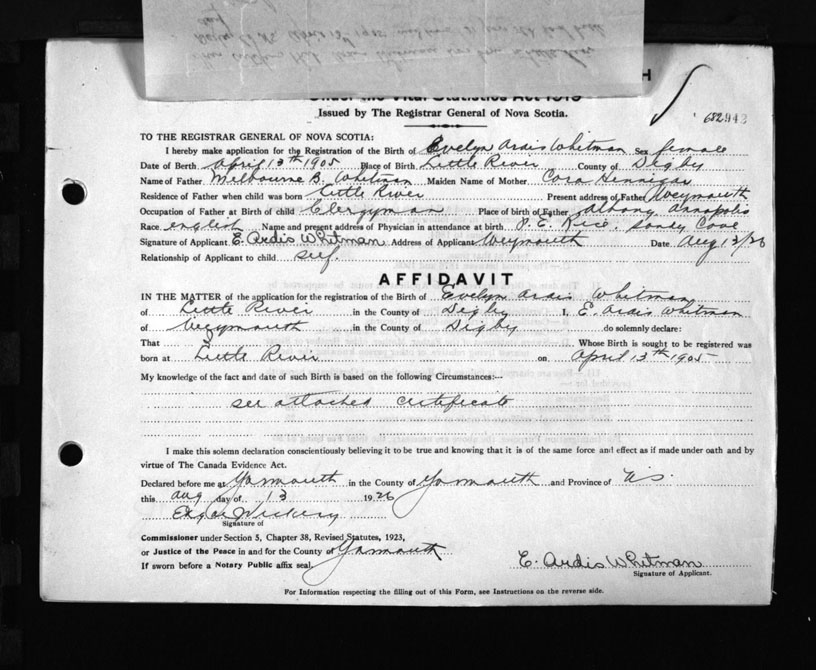 H
Under the Vital Statistics Act 1919
Issued by The Registrar General of Nova Scotia.
682943
TO THE REGISTRAR GENERAL OF NOVA SCOTIA:
I hereby make application for the Registration of the Birth of Evelyn Ardis Whitman Sex female
Date of Berth April 13th 1905 Place of Birth Little River County of Digby
Name of Father Melbourne B. Whitman Maiden Name of Mother Cora Hennigar
Residence of Father when child was born Little River Present address of Father Weymouth
Occupation of Father at Birth of child Clergyman Place of birth of Father Albany Annapolis
Race english Name and present address of Physician in attendance at birth P. E. Rice. Sandy Cove
Signature of Applicant E. Ardis Whitman Address of Applicant Weymouth Date Aug 13/26
Relationship of Applicant to child self.
AFFIDAVIT
IN THE MATTER of the application for the registration of the Birth of Evelyn Ardis Whitman
of Little River in the County of Digby I, E. Ardis Whitman
of Weymouth in the County of Digby do solemnly declare:
That Whose Birth is sought to be registered was
born at Little River on April 13th 1905
My knowledge of the fact and date of such Birth is based on the following Circumstances:—
see attached certificate
I make this solemn declaration conscientiously believing it to be true and knowing that it is of the same force and effect as if made under oath and by
virtue of The Canada Evidence Act.
Declared before me at Yarmouth in the County of Yarmouth and Province of N S.
this Aug day of 13 1926
Signature of
Commissioner under Section 5, Chapter 38, Revised Statutes, 1923,
or Justice of the Peace in and for the County of Yarmouth
If sworn before a Notary Public affix seal.
E. Ardis Whitman
Signature of Applicant.
For Information respecting the filling out of this Form, see Instructions on the reverse side.